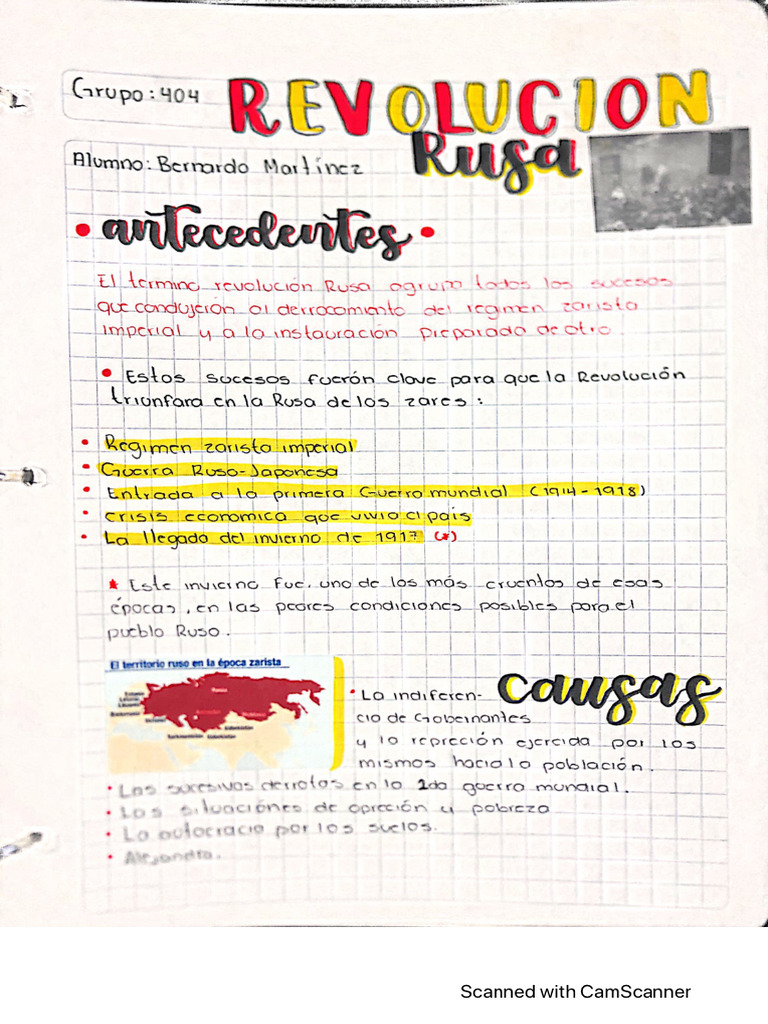 Grupo: 404
REVOLUCION
Rusa
Alumno: Bernardo Martínez
• antecedentes •
El termino revolución Rusa agrupa todos los sucesos
que condujerón al derrocamiento del regimen zarista
imperial y a la instauración preparada de otro.
• Estos sucesos fuerón clave para que la Revolución
triunfara en la Rusa de los zares:
• Regimen zarista imperial
• Guerra Ruso-Japonesa
• Entrada a la primera Guerra mundial (1914-1918)
• crisis economica que vivio el pais
• La llegada del invierno de 1917 (*)
* Este invierno fue, uno de los más cruentos de esas
épocas, en las peores condiciones posibles para el
pueblo Ruso.
El territorio ruso en la época zarista
causas
• La indiferen-
cia de Gobernantes
y la represión ejercida por los
mismos hacia la población.
• Las sucesivas derrotas en la 2da guerra mundial.
• Las situaciónes de opreción y pobreza
• La autocracia por los suelos.
• Alejandra.
Scanned with CamScanner